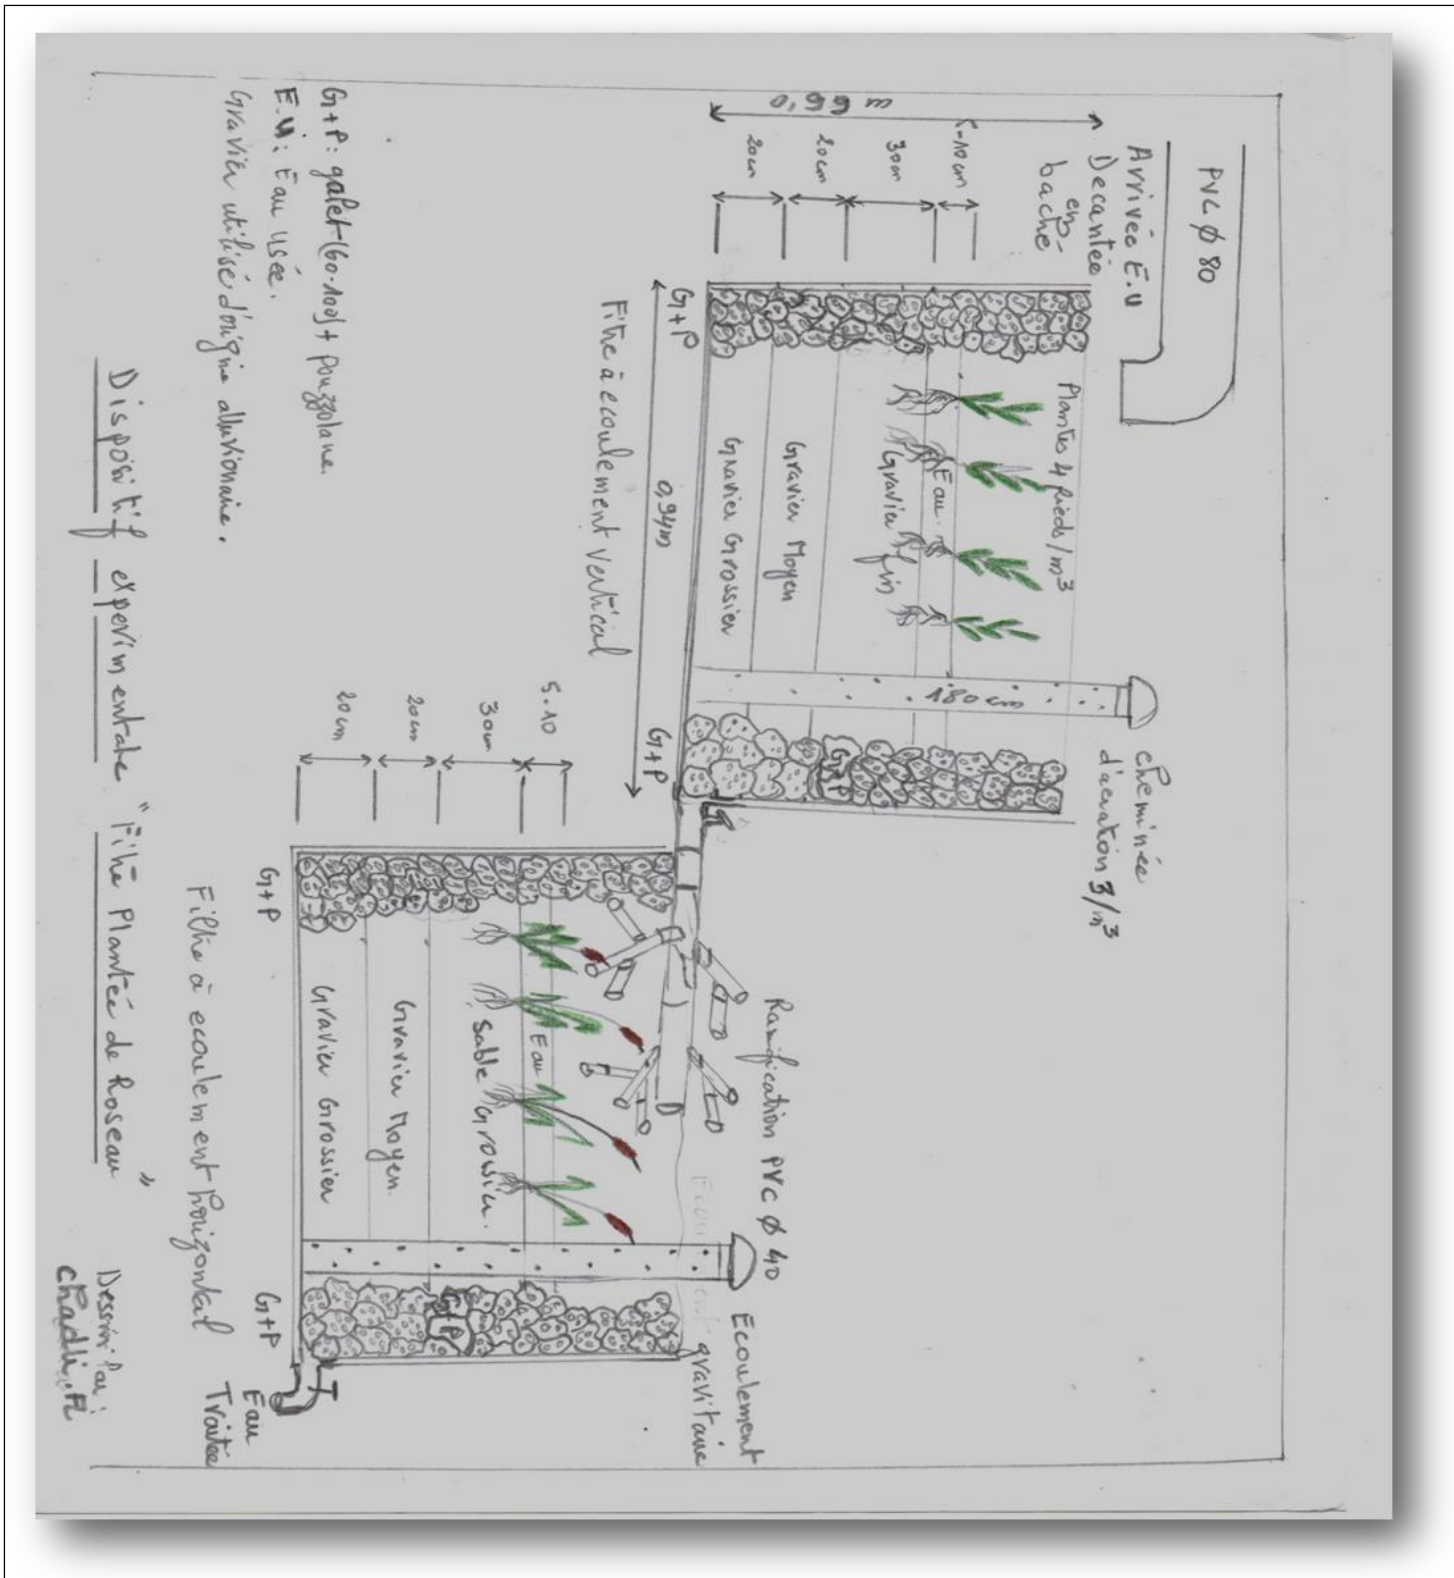 PVC Ø 80
Arrivée E.U
Decantée
en
baché
5-10 cm
30 cm
20 cm
20 cm
Plantes 4 Pieds/m³
Eau.
Gravier fin
Gravier Moyen
Gravier Grossier
180 cm
Cheminée
d'aeration 3/m³
G+P
G+P
G+P
0,94m
Filtre à ecoulement vertical
Ramification PVC Ø 40
Ecoulement
gravitaire
5-10
30 cm
20 cm
20 cm
Eau
Sable Grossier.
Gravier Moyen.
Gravier Grossier
G+P
G+P
G+P
Eau
Traitée
Filtre à ecoulement horizontal
G+P: galet (60-100) + Pouzzolane.
E.U: Eau usée.
Gravier utilisé d'origine alluvionaire.
Dispositif experimentale "Filtre Plantée de Roseau"
Dessin Par: